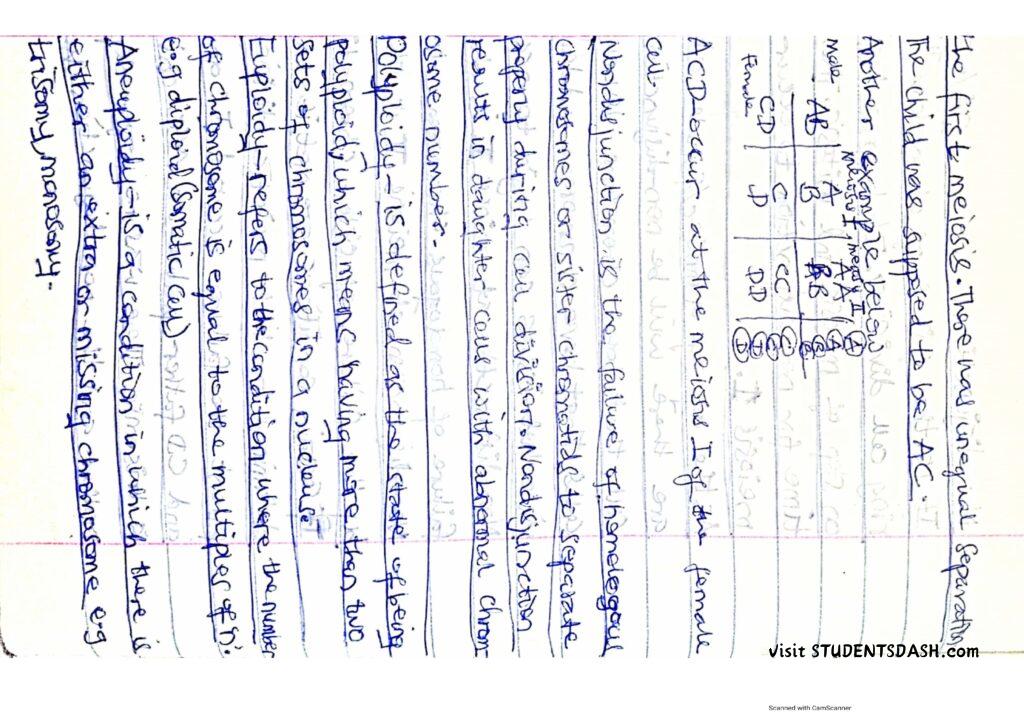 the first meiosis. There was unequal separation
The child was supposed to be AC.
Another example below
meiosis I, meiosis II
male AB A AA A
B BB
CD C CC C
Female D DD D
ACD occur at the meiosis I of the female
cell.
Nondisjunction is the failure of homologous
chromosomes or sister chromatids to separate
properly during cell division. Nondisjunction
results in daughter cells with abnormal chrom-
osome number.
Polyploidy - is defined as the state of being
polyploidy, which means having more than two
sets of chromosomes in a nucleus.
Euploidy - refers to the condition where the number
of chromosome is equal to the multiples of 'n'.
e.g diploid (somatic cell)
Aneuploidy - is a condition in which there is
either an extra or missing chromosome e.g
trisomy, monosomy.
visit STUDENTSDASH.com
Scanned with CamScanner